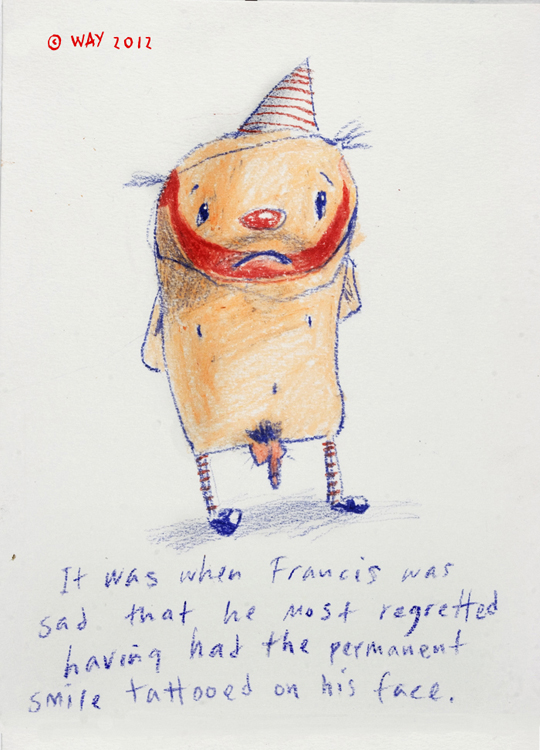 © WAY 2012
It was when Francis was
sad that he most regretted
having had the permanent
smile tattooed on his face.